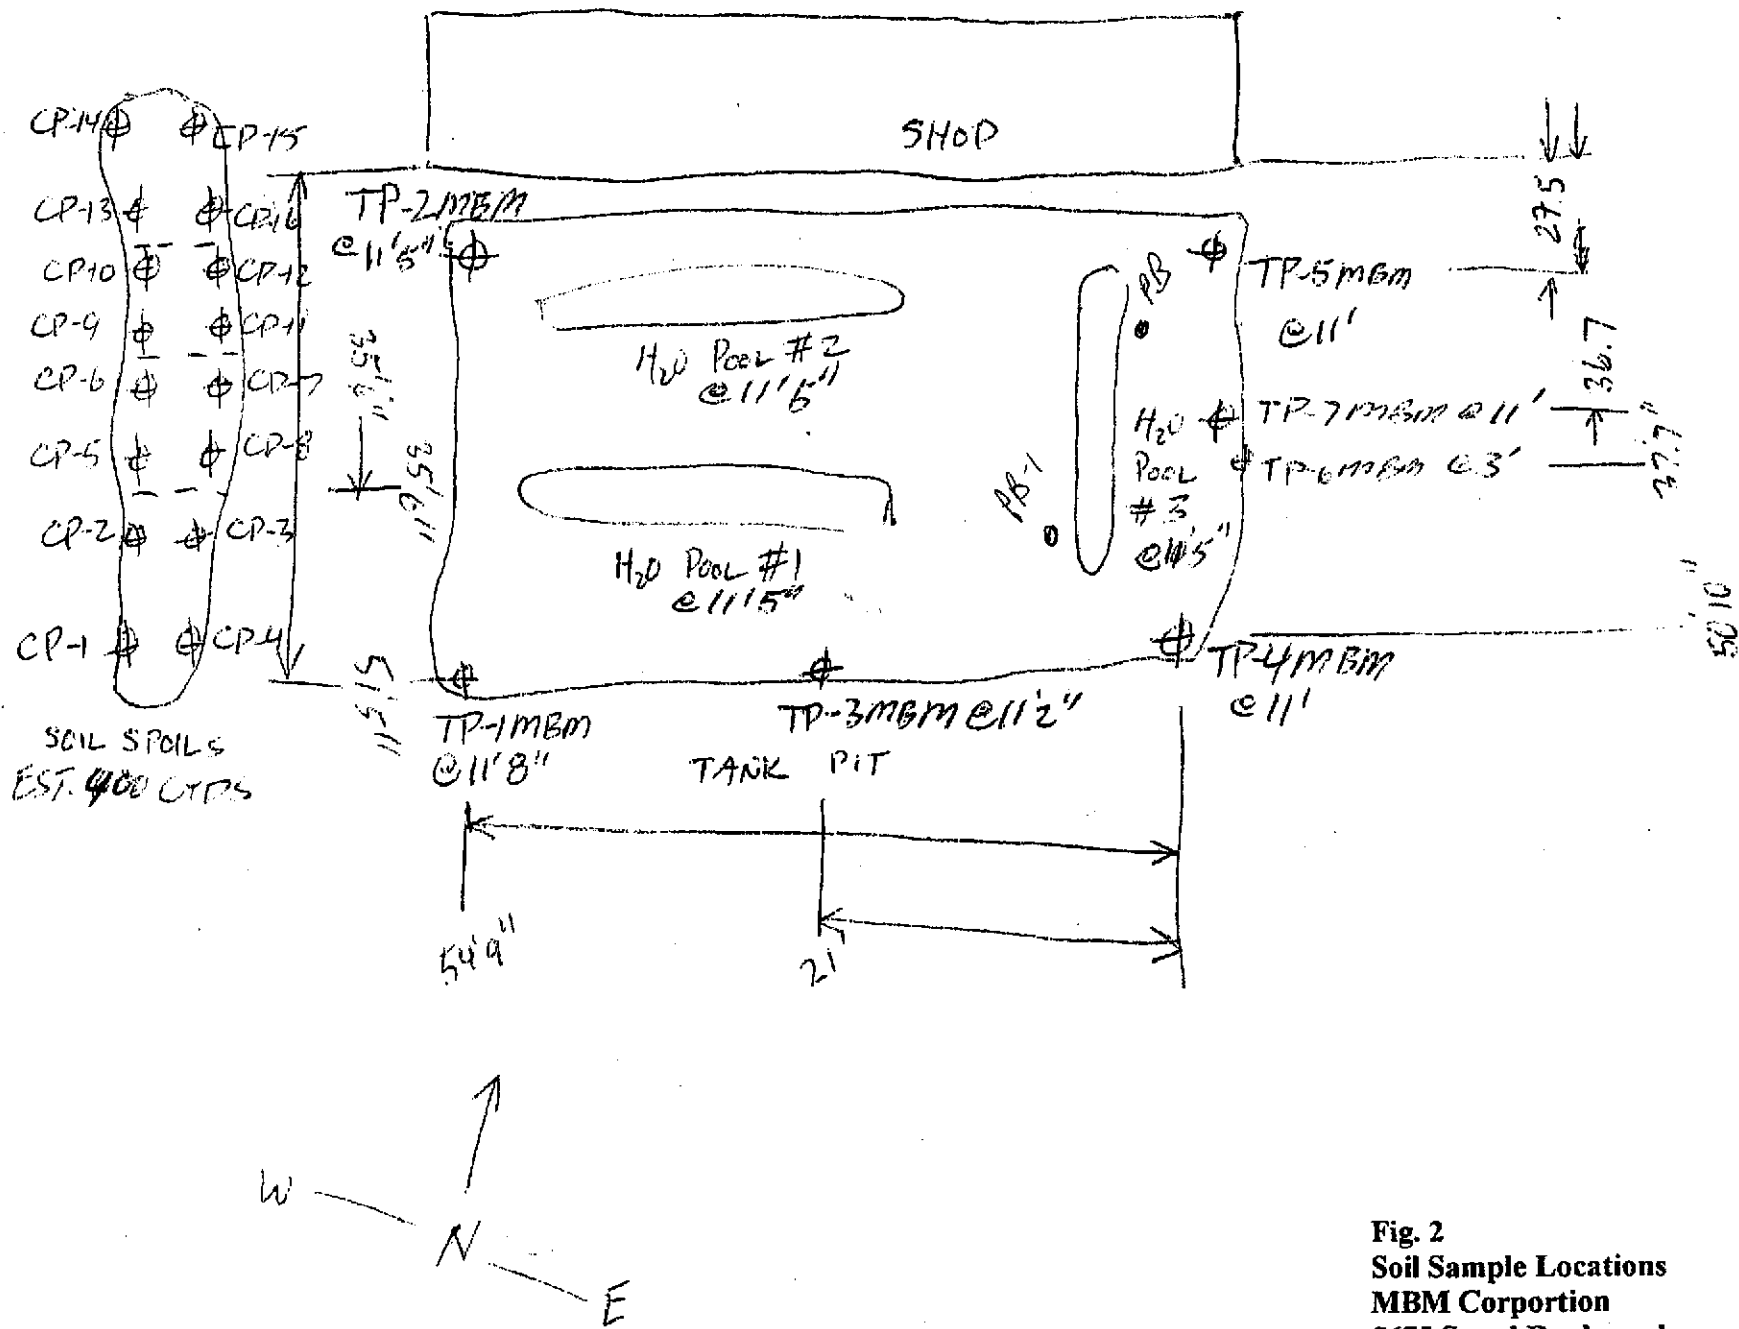 SHOP
CP-14
CP-15
CP-13
CP-16
CP-10
CP-12
CP-9
CP-11
CP-6
CP-7
CP-5
CP-8
CP-2
CP-3
CP-1
CP-4
SOIL SPOILS
EST. 400 CYDS
TP-2MBM
@11'5"
35'6"
35'6"
51'5"
H2O POOL #2
@11'5"
H2O POOL #1
@11'5"
PB
PB-1
H2O
POOL
#3
@11'5"
TP-5MBM
@11'
TP-7MBM @11'
TP-6MBM @3'
TP-4MBM
@11'
27.5
36.7
37.7"
50'10"
TP-1MBM
@11'8"
TP-3MBM @11'2"
TANK PIT
54'9"
21'
W
N
E
Fig. 2
Soil Sample Locations
MBM Corportion